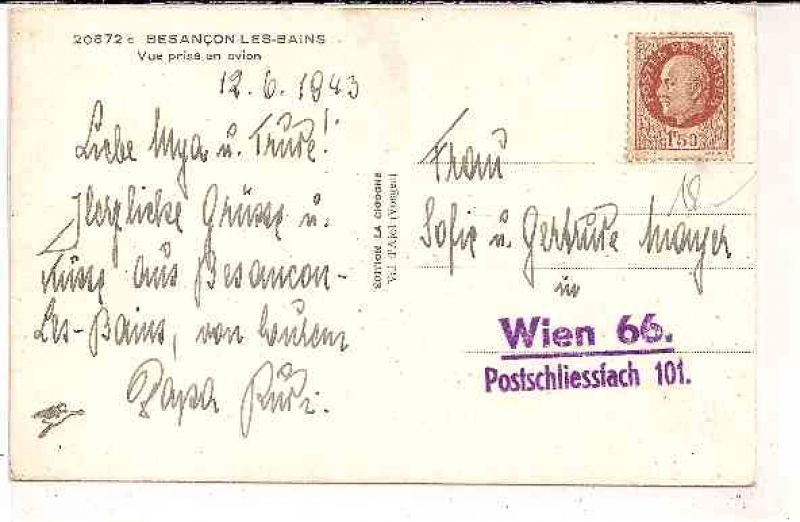 20872 c BESANÇON-LES-BAINS
Vue prise en avion
12. 6. 1943
Liebe Mya u. Trude!
Herzliche Grüsse u.
Küsse aus Besancon-
Les-Bains, von Eurem
Papa Rudi.
EDITION LA CIGOGNE
1F50
Frau
Sofie u. Gertrude Mayer
in
Wien 66.
Postschliessfach 101.